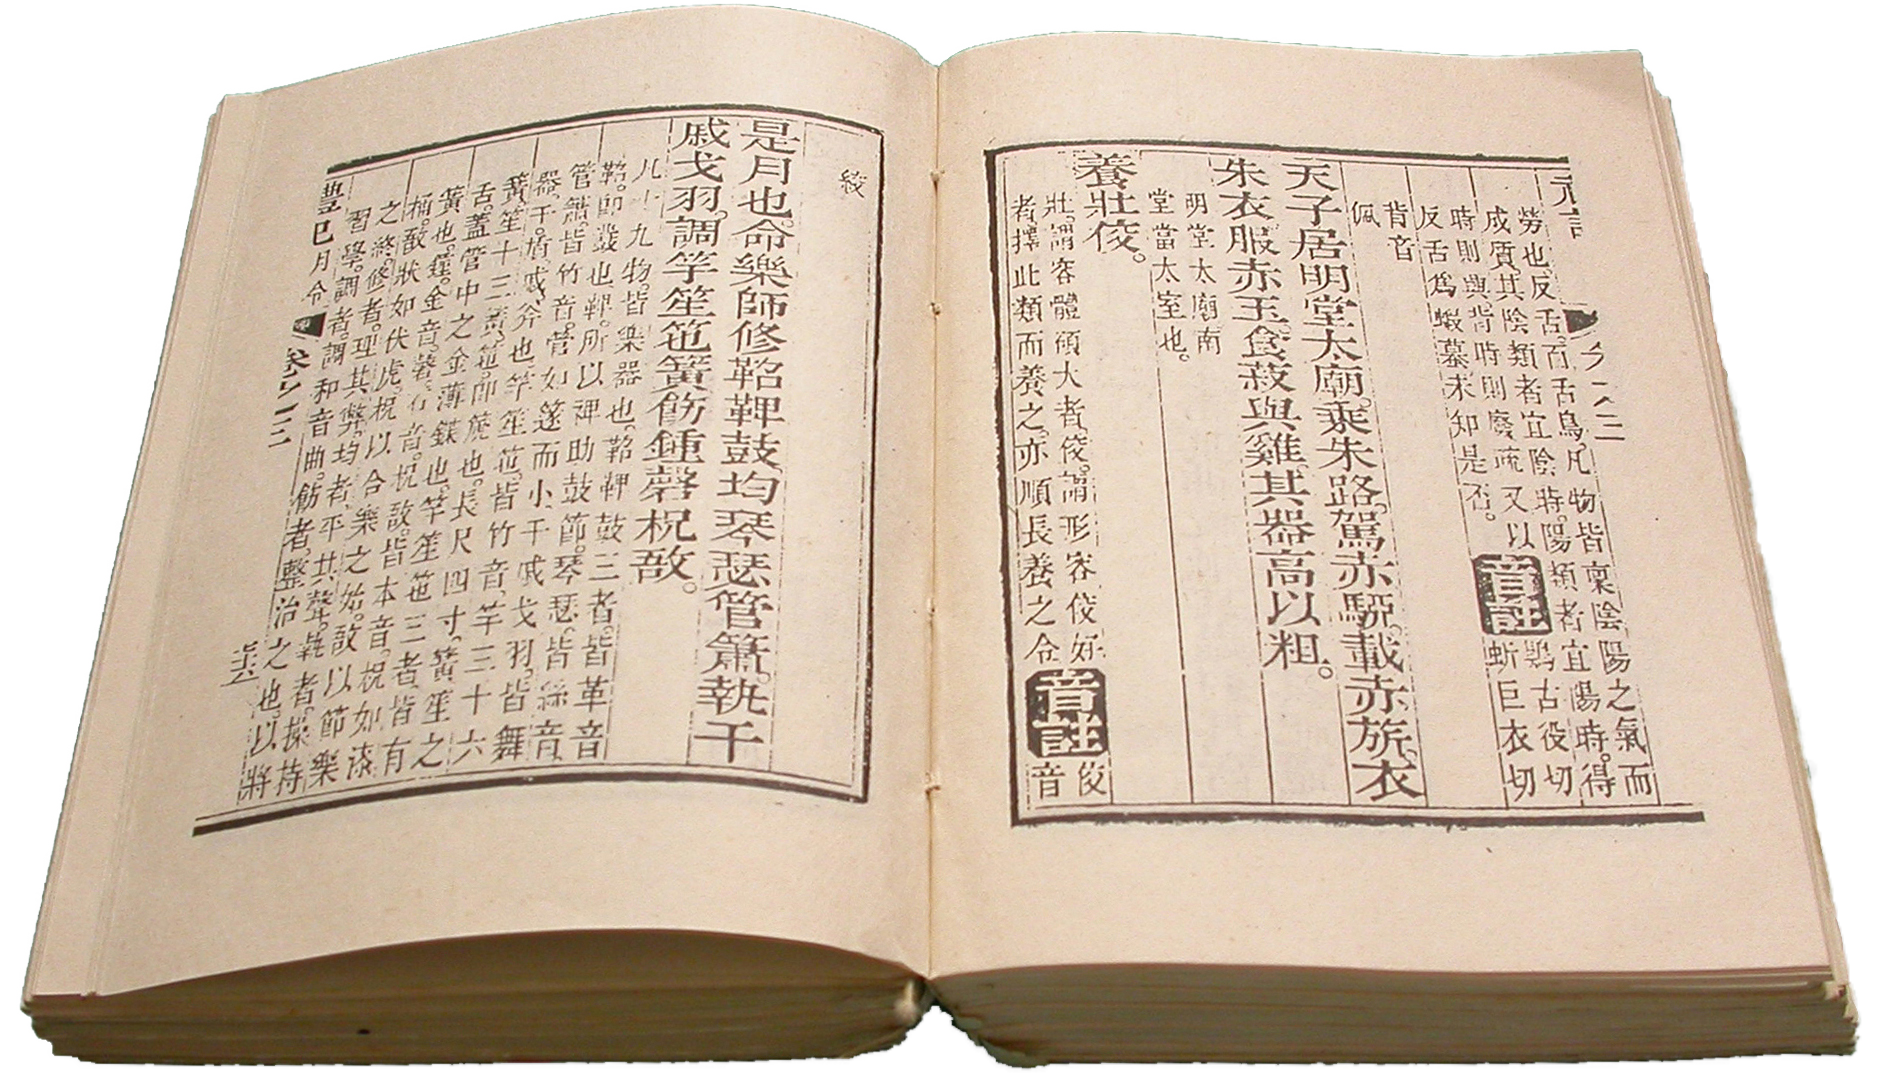 勞也。反舌。百舌鳥。凡物皆稟陰陽之氣而
成質。其陰類者宜陰時。陽類者宜陽時。得
時則與背時則廢疏又以
反舌爲蝦蟇未知是否。
音註
鶪古役切
蚚巨衣切
背音
佩
天子居明堂太廟。乘朱路。駕赤騮。載赤旂。衣
朱衣服赤玉。食菽與雞。其器高以粗。
明堂太廟南
堂當太室也。
養壯佼。
壯。謂容體碩大者。佼。謂形容佼好
者。擇此類而養之。亦順長養之令
音註
佼
音
絞
是月也。命樂師修鞀鞞鼓。均琴瑟管簫。執干
戚戈羽。調竽笙竾簧。飭鍾磬柷敔。
凡十九物。皆樂器也。鞀鞞鼓三者。皆革音
鞀。即鼗也。鞞。所以裨助鼓節。琴瑟。皆絲音
管簫。皆竹音。管如篴而小。干戚戈羽。皆舞
器。干。盾。戚。斧也。竽笙竾。皆竹音。竽三十六
簧。笙十三簧。竾。即篪也。長尺四寸。簧。笙之
舌。蓋管中之金薄鍱也。竽笙竾三者。皆有
簧也。鍾。金音。磬。石音。柷敔。皆本音。柷如漆
桶。敔狀如伏虎。柷以合樂之始。敔以節樂
之終。修者。理其弊。均者。平其聲。執者。操持
習學。調者。調和音曲。飭者。整治之也。以將
豊巳月令 卷之三